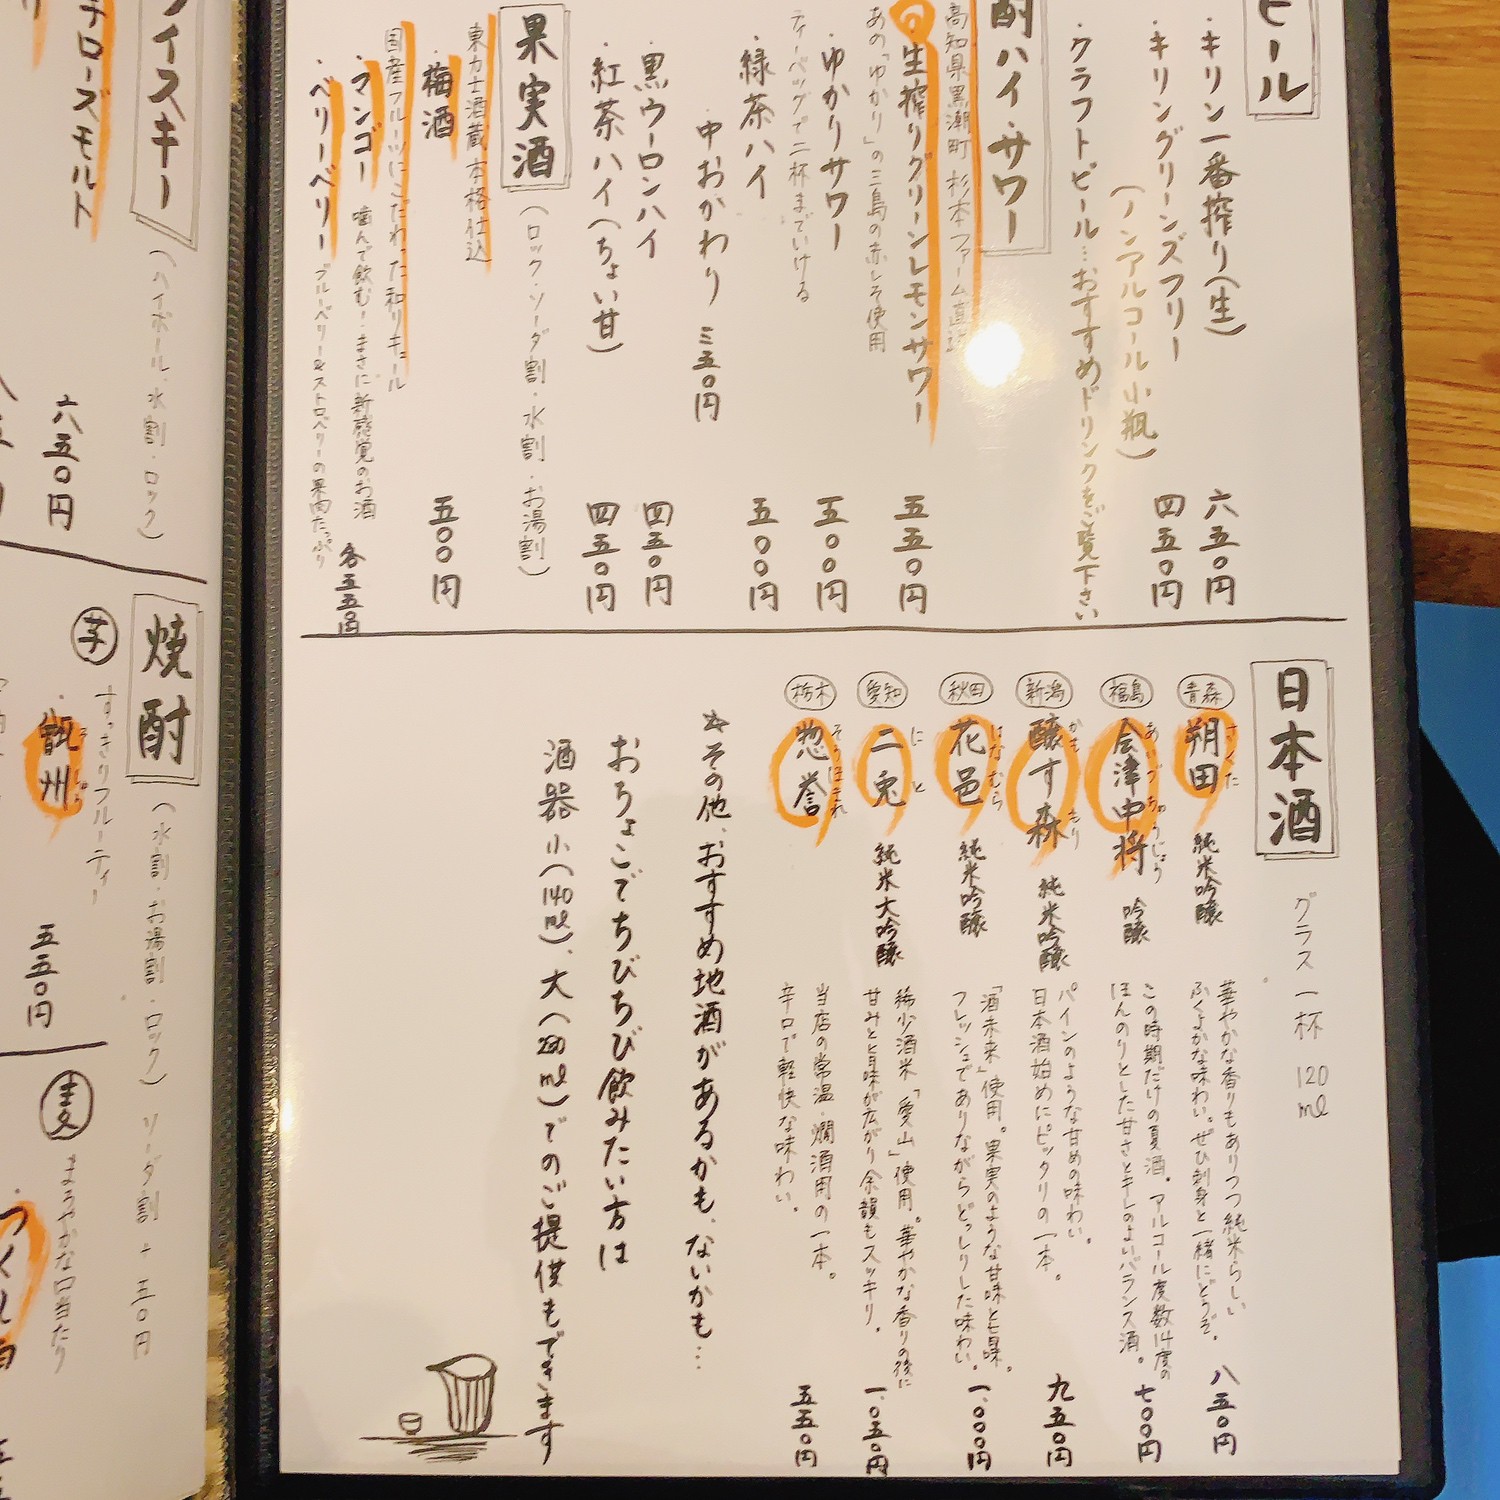 ビール
・キリン一番搾り(生) 六五〇円
・キリングリーンズフリー
(ノンアルコール小瓶) 四五〇円
・クラフトビール…おすすめドリンクをご覧下さい
酎ハイ・サワー
高知県黒潮町 杉本ファーム直送
生搾りグリーンレモンサワー 五五〇円
あの「ゆかり」の三島の赤しそ使用
・ゆかりサワー 五〇〇円
ティーバッグで二杯までいける
・緑茶ハイ 五〇〇円
中おかわり 三五〇円
・黒ウーロンハイ 四五〇円
・紅茶ハイ(ちょい甘) 四五〇円
果実酒
(ロック・ソーダ割・水割・お湯割)
東力士酒蔵本格仕込
・梅酒 五〇〇円
国産フルーツにこだわった和リキュール
・マンゴー 噛んで飲む!まさに新感覚のお酒
・ベリーベリー ブルーベリー&ストロベリーの果肉たっぷり
各五五〇円
日本酒
グラス一杯 120ml
青森 朔田 さくた 純米吟醸
華やかな香りもありつつ純米らしい
ふくよかな味わい。ぜひ刺身と一緒にどうぞ。
八五〇円
福島 会津中将 あいづちゅうじょう 吟醸
この時期だけの夏酒。アルコール度数14度の
ほんのりとした甘さとキレのよいバランス酒。
七〇〇円
新潟 醸す森 かも もり 純米吟醸
パインのような甘めの味わい。
日本酒始めにピッタリの一本。
九五〇円
秋田 花邑 はなむら 純米吟醸
「酒未来」使用。果実のような甘味と旨味。
フレッシュでありながらどっしりした味わい。
一、〇〇〇円
愛知 二兎 にと 純米大吟醸
稀少酒米「愛山」使用。華やかな香りの後に
甘みと旨味が広がり余韻もスッキリ。
一、〇五〇円
栃木 惣誉 そうほまれ
当店の常温・燗酒用の一本。
辛口で軽快な味わい。
五五〇円
☆その他、おすすめ地酒があるかも、ないかも…
おちょこでちびちび飲みたい方は
酒器 小(140ml)、大(280ml)でのご提供もできます
ウイスキー
(ハイボール、水割・ロック)
チローズモルト
六五〇円
焼酎
(水割・お湯割・ロック) ソーダ割 + 五〇円
芋
すっきりフルーティー
・甑州 五五〇円
麦
まろやかな口当たり